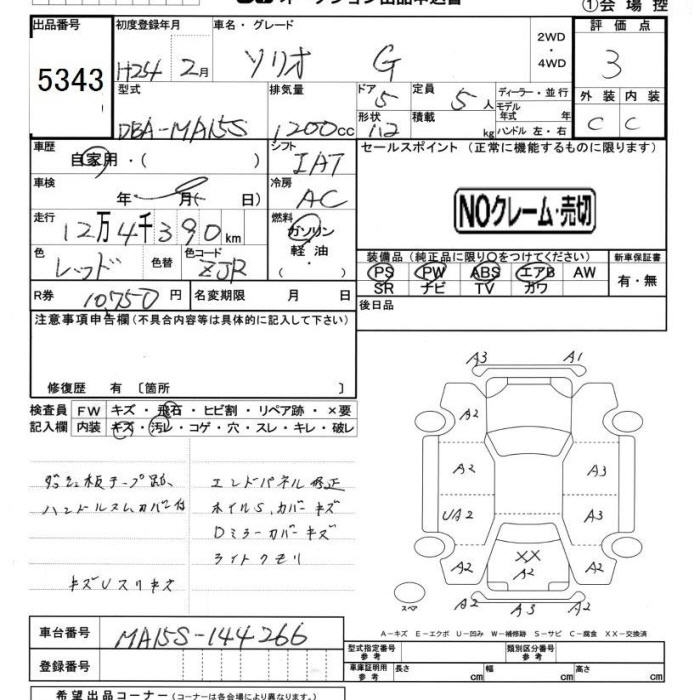 ①会場控
出品番号
5343
初度登録年月
H24 2月
車名・グレード
ソリオ G
2WD
・
4WD
評価点
3
外装 内装
C C
型式
DBA-MA15S
排気量
1200cc
ドア
5
形状
112
定員
5人
積載
kg
ディーラー・並行
モデル
年式 年
ハンドル 左・右
車歴
自家用・( )
シフト
IAT
車検
年 月( 日
冷房
AC
走行
12万4千390km
燃料
ガソリン
軽油
・( )
色
レッド
色替
色コード
ZJR
R券 10750円
名変期限 月 日
セールスポイント (正常に機能するものに限ります)
NOクレーム・売切
装備品(純正品に限り○をつけてください)
PS PW ABS エアB AW
SR ナビ TV カワ
新車保証書
有・無
後日品
注意事項申告欄(不具合内容等は具体的に記入して下さい)
修復歴 有〔箇所 〕
検査員
記入欄
FW キズ・飛石・ヒビ割・リペア跡・×要
内装 キズ・汚レ・コゲ・穴・スレ・キレ・破レ
ダッシュ板テープ跡、
ハンドルスレ、カバー付
キズUスリキズ
エンドパネル修正
ホイルS、カバーキズ
Dミラーカバーキズ
ライトクモリ
A3 A1
A2
A2 A3
UA2 A3
A2 XX A2 A2
A2 A3
スペア
A-キズ E-エクボ U-凹み W-補修跡 S-サビ C-腐食 XX-交換済
車台番号 MA15S-144266
登録番号
型式指定番号
参考
類別区分番号
参考
車庫証明用
参考
長さ cm 幅 cm 高さ cm
希望出品コーナー(コーナーは各会場により異なります。)